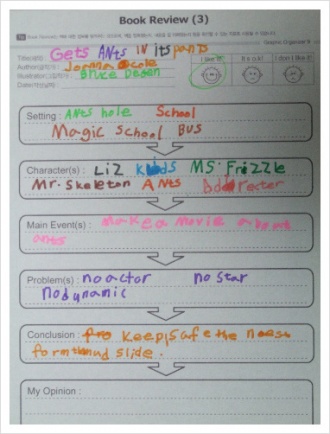 Book Review (3)
Graphic Organizer
Title(제목) : Gets ANts IN its pants
Author(글쓴이) : Joanna cole
Illustrator(그림이) : Bruce Degen
Date(날짜)
I like it! It's o.k! I don't like it!
Setting : ANts hole School
Magic School BUS
Character(s) : LiZ Kids MS. Frizzle
Mr. skeleton ANts
Main Event(s) : make a movie
ants
Problem(s) : no actor no star
No dynamic
Conclusion : Keep safe the
slide.
My Opinion :